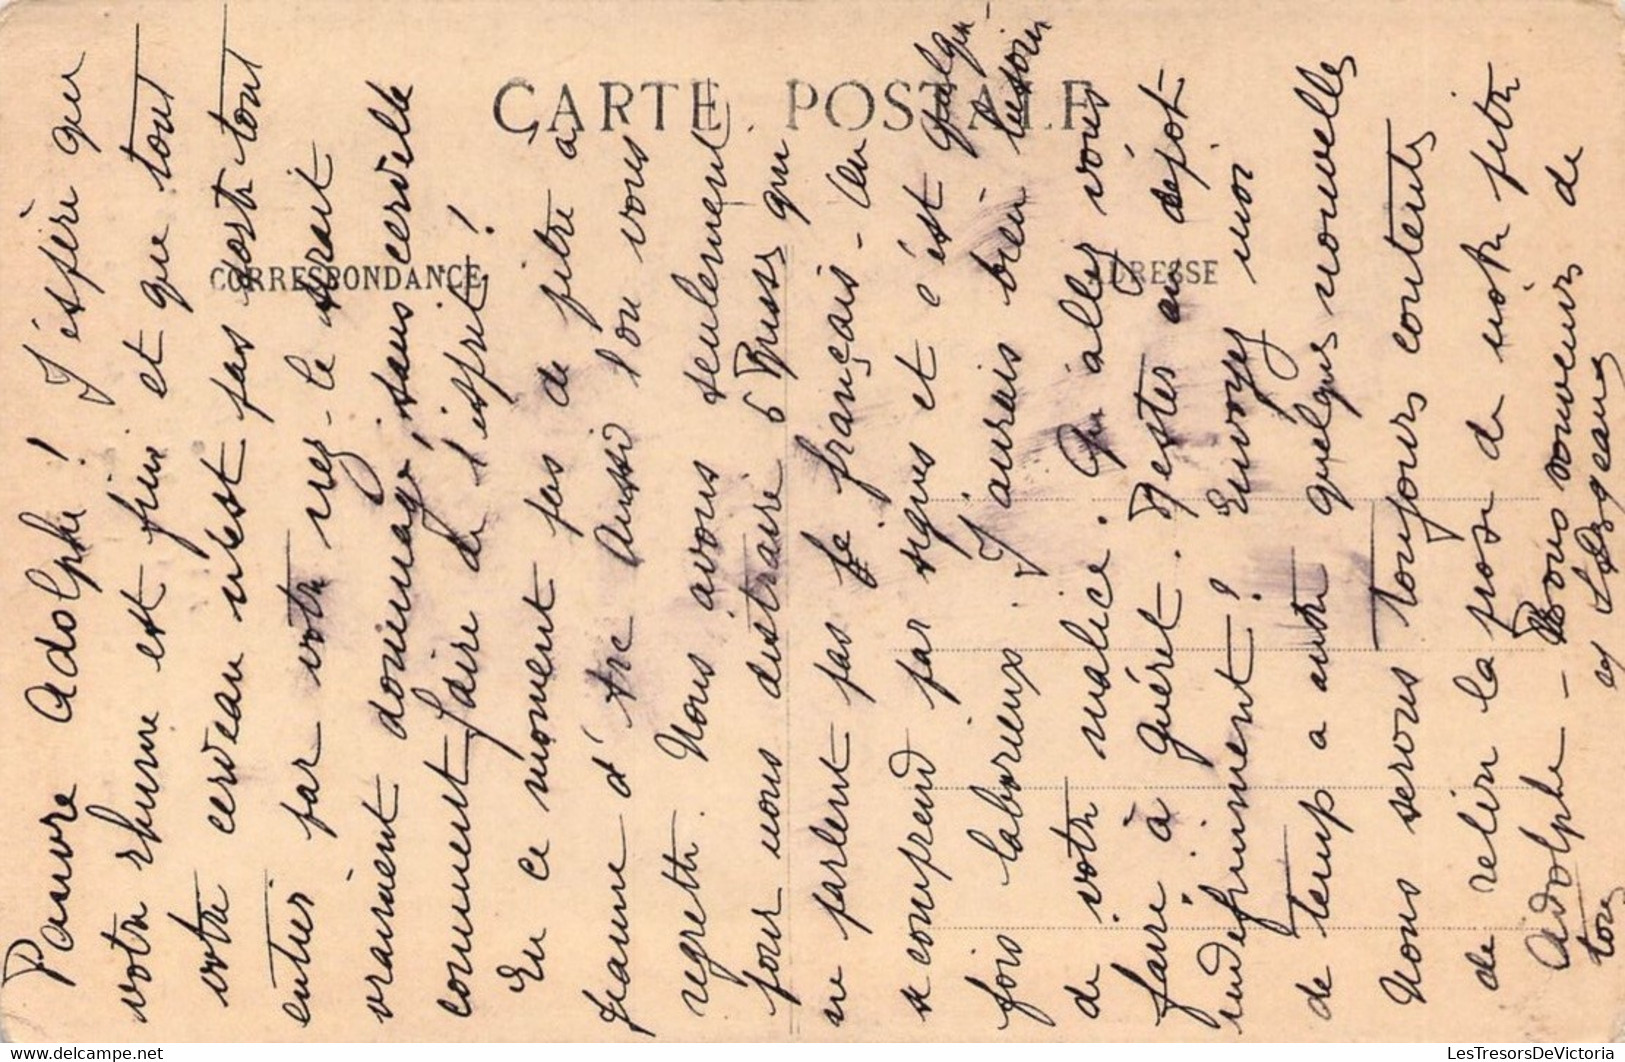 CARTE POSTALE
CORRESPONDANCE
ADRESSE
Pauvre Adolphe! J'espère que
votre rhume est fini et que tout
votre cerveau n'est pas sorti tout
entier par votre nez - ce serait
vraiment dommage, sans cervelle
comment faire de l'esprit!
En ce moment pas de pitre à
Jeanne d'Arc aussi l'on vous
regrette. Nous avons seulement
pour nous distraire 6 Russes qui
ne parlent pas le français - On
se comprend par signes et c'est quelque-
fois laborieux. J'aurais bien besoin
de votre malice. Qu'allez vous
faire à Guéret. Restez au dépôt
indéfiniment! Envoyez moi
de temps à autre quelques nouvelles
Nous serons toujours contents
de relire la prose de notre pitre
Adolphe - Bons souvenirs de
tous
LesTresorsDeVictoria
www.delcampe.net